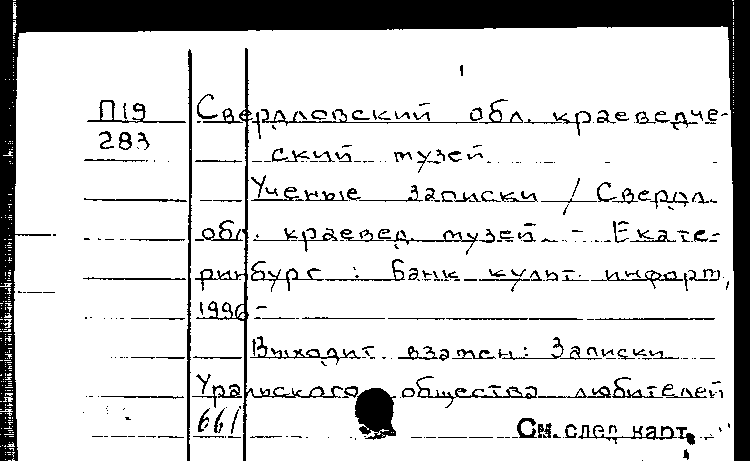 П19 Свердловский обл. краеведче-
283 ский музей
Ученые записки / Свердл.
обл. краевед. музей. - Екате-
ринбург : Банк культ. информ,
1996-
Выходит взамен: Записки
Уральского общества любителей
661
См. след. карт.